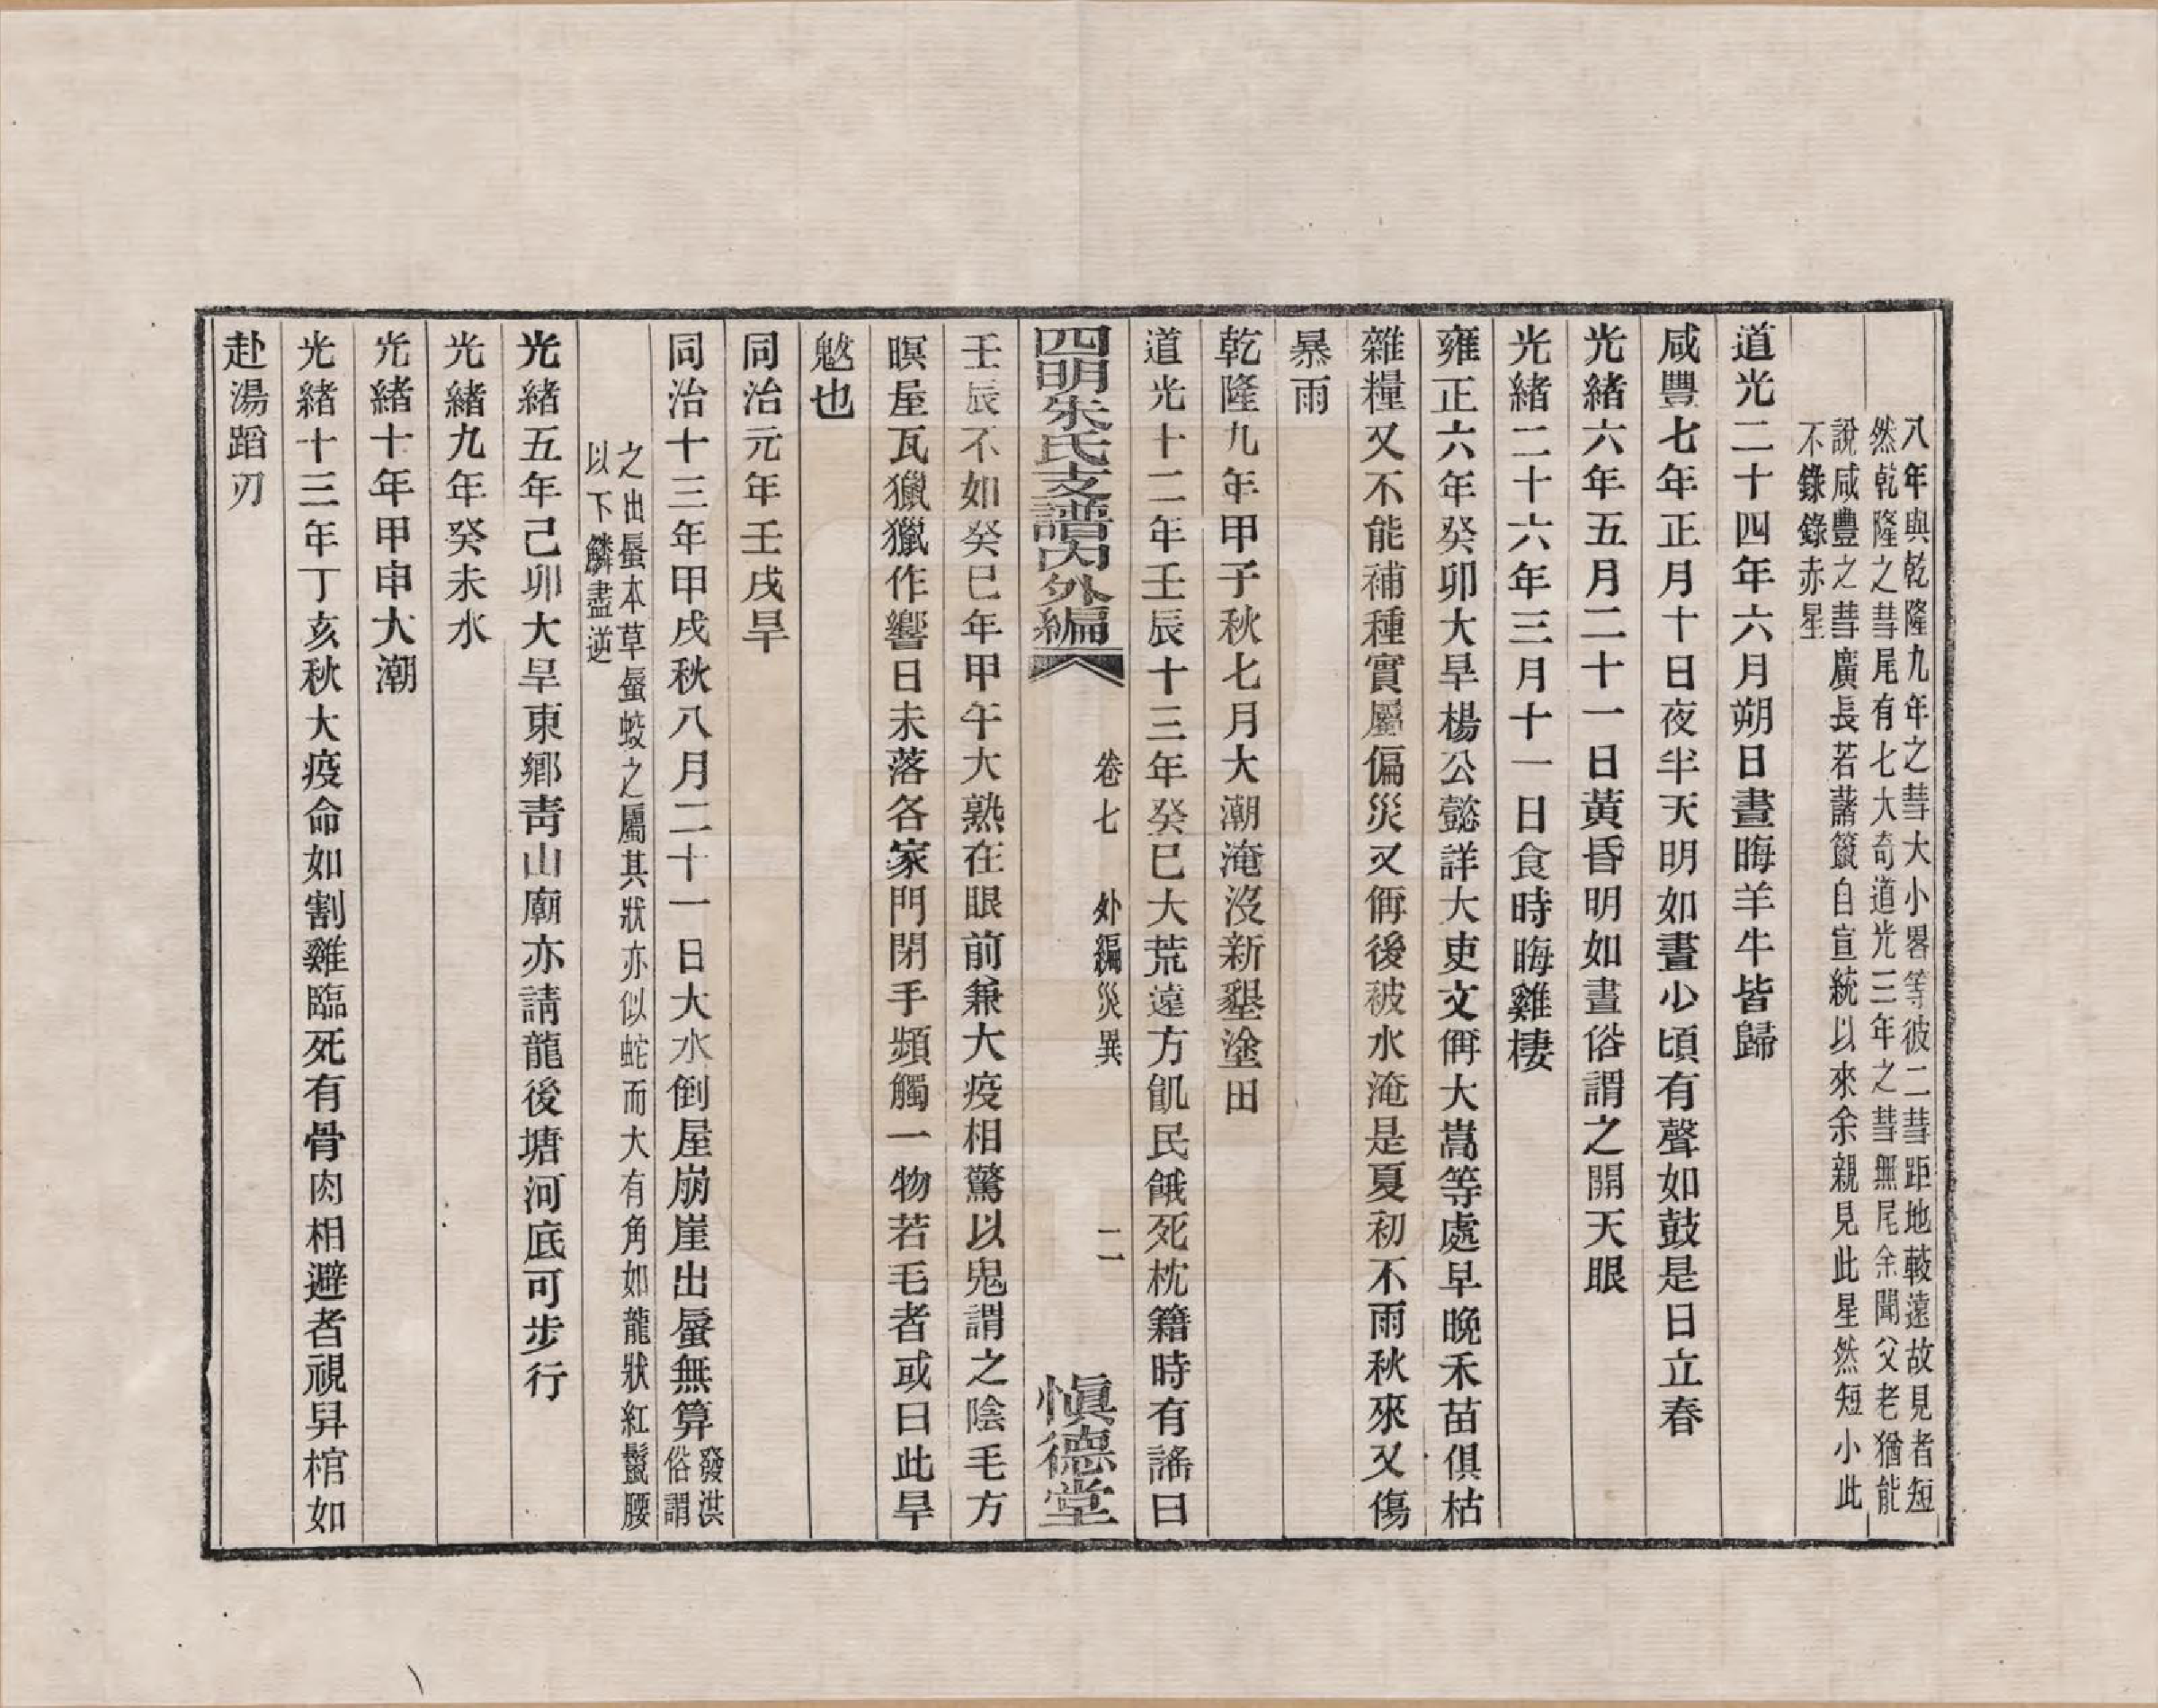 八年與乾隆九年之彗大小畧等彼二彗距地較遠故見者短
然乾隆之彗尾有七大奇道光三年之彗無尾余聞父老猶能
說咸豐之彗廣長若蘠籬自宣統以來余親見此星然短小此
不錄錄赤星
道光二十四年六月朔日晝晦羊牛皆歸
咸豐七年正月十日夜半天明如晝少頃有聲如鼓是日立春
光緒六年五月二十一日黃昏明如晝俗謂之開天眼
光緒二十六年三月十一日食時晦雞棲
雍正六年癸卯大旱楊公懿詳大吏文偁大嵩等處早晚禾苗俱枯
雜糧又不能補種實屬偏災又偁後被水淹是夏初不雨秋來又傷
暴雨
乾隆九年甲子秋七月大潮淹沒新墾塗田
道光十二年壬辰十三年癸巳大荒遠方飢民餓死枕籍時有謠曰
四明朱氏支譜內外編
卷七 外編災異
二
愼德堂
壬辰不如癸巳年甲午大熟在眼前兼大疫相驚以鬼謂之陰毛方
暝屋瓦獵獵作響日未落各家門閉手頻觸一物若毛者或曰此旱
魃也
同治元年壬戌旱
同治十三年甲戌秋八月二十一日大水倒屋崩崖出蜃無算發洪
俗謂
之出蜃本草蜃蛟之屬其狀亦似蛇而大有角如龍狀紅鬣腰
以下鱗盡逆
光緒五年己卯大旱東鄉靑山廟亦請龍後塘河底可步行
光緒九年癸未水
光緒十年甲申大潮
光緒十三年丁亥秋大疫命如割雞臨死有骨肉相避者視舁棺如
赴湯蹈刃